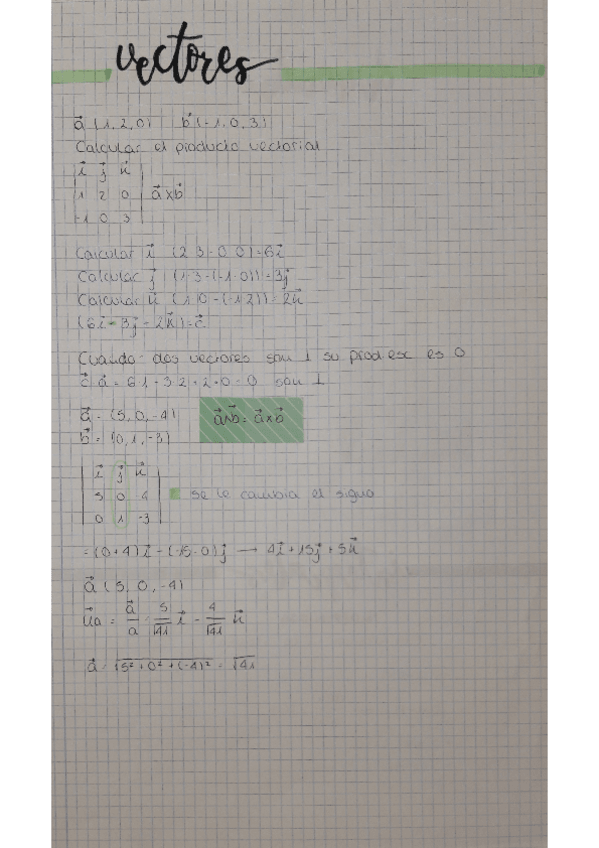 vectores
a⃗ (1, 2, 0) b⃗ (-1, 0, 3)
Calcular el producto vectorial
i⃗ j⃗ k⃗
1 2 0 a⃗ x b⃗
-1 0 3
Calcular i⃗ (2·3 - 0·0) = 6i⃗
Calcular j⃗ (1·3 - (-1·0)) = 3j⃗
Calcular k⃗ (1·0 - (-1·2)) = 2k⃗
(6i⃗ - 3j⃗ - 2k⃗) = c⃗
Cuando dos vectores son ⊥ su prod esc es 0
c⃗ · a⃗ = 6·1 - 3·2 + 2·0 = 0 son ⊥
a⃗ = (5, 0, -4)
b⃗ = (0, 1, -3)
a⃗∧b⃗ = a⃗ x b⃗
i⃗ j⃗ k⃗
5 0 4 se le cambia el signo
0 1 -3
= (0+4)i⃗ - (-15-0)j⃗ → 4i⃗ + 15j⃗ + 5k⃗
a⃗ (5, 0, -4)
u⃗a = a⃗/a = 5/√41 i⃗ - 4/√41 k⃗
a⃗ = √5² + 0² + (-4)² = √41